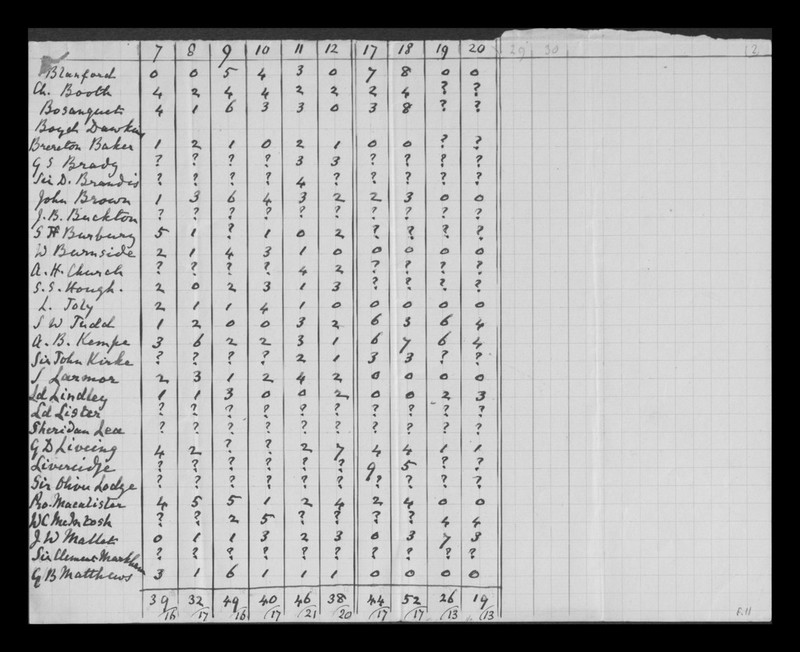 7 8 9 10 11 12 17 18 19 20 29 30 2
Blanford 0 0 5 4 3 0 7 8 0 0
Ch. Booth 4 2 4 4 2 2 2 4 ? ?
Bosanquet 4 1 6 3 3 0 3 8 ? ?
Boyd Dawkins
Brereton Baker 1 2 1 0 2 1 0 0 ? ?
G S Brady ? ? ? ? 3 3 ? ? ? ?
Sir D. Brandis ? ? ? ? 4 ? ? ? ? ?
John Brown 1 3 6 4 3 2 2 3 0 0
J. B. Buckton ? ? ? ? ? ? ? ? ? ?
S H Burbury 5 1 ? 1 0 2 ? ? ? ?
W Burnside 2 1 4 3 1 0 0 0 0 0
A. H. Church ? ? ? ? 4 2 ? ? ? ?
S. S. Hough. 2 0 2 3 1 3 ? ? ? ?
L. Joly 2 1 1 4 1 0 0 0 0 0
J W Judd 1 2 0 0 3 2 6 3 6 4
A. B. Kempe 3 6 2 2 3 1 6 7 6 4
Sir John Kirke ? ? ? ? 2 1 3 3 ? ?
J Larmor 2 3 1 2 4 2 0 0 0 0
Ld Lindley 1 1 3 0 0 2 0 0 2 3
Ld Lister ? ? ? ? ? ? ? ? ? ?
Sheridan Lea ? ? ? ? ? ? ? ? ? ?
G D Liveing 4 2 ? ? 2 7 4 4 1 1
Liveridge ? ? ? ? ? ? 9 5 ? ?
Sir Oliver Lodge ? ? ? ? ? ? ? ? ? ?
Pro. Macalister 4 5 5 1 2 4 2 4 0 0
W C McIntosh ? ? 2 5 ? ? ? ? 4 4
J W Mallet 0 1 1 3 2 3 0 3 7 3
Sir Clement Markham ? ? ? ? ? ? ? ? ? ?
G B Matthews 3 1 6 1 1 1 0 0 0 0
39/16 32/17 49/16 40/17 46/21 38/20 44/17 52/17 26/13 19/13
F. 11